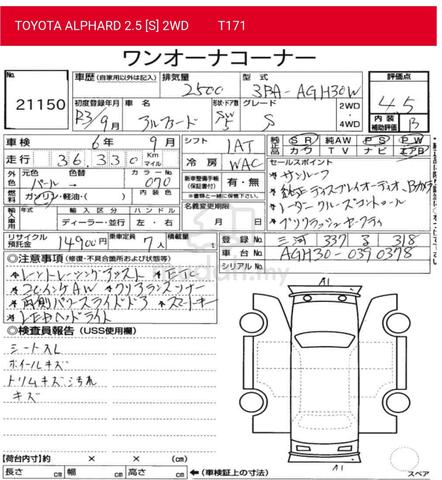 TOYOTA ALPHARD 2.5 [S] 2WD T171
ワンオーナコーナー
No. 21150
車歴(自家用以外は記入) 排気量 2500 型式 3BA-AGH30W 評価点 4.5
初度登録年月 R3/9月 車名 アルファード 形状・ドア数 5 グレード S 2WD 4WD 内装補助評価 B
車検 6年 9月 シフト IAT 純正 SR 純AW PS PW
走行 36,330 Km マイル 冷房 WAC カワ TV ナビ エアB
外 元色 パール 色替 カラーNo 070 内装色
燃 ガソリン・軽油・( )
新車整備手帳(保証書) 有・無
※書類と一緒に保管下さい。
セールスポイント
★サンルーフ
★純正ディスプレイオーディオ、Bカメラ
★レーダークルーズコントロール
★プリクラッシュセーフティ
輸入車用 輸入区分 ディーラー・並行 ハンドル 左・右
名義変更期限 月 日
リサイクル預託金 14900円 乗車定員 7人 積載量 t
登録No 三河 337 3 318
車台No. AGH30-0390378
シリアルNo.
◎注意事項(修理・不具合箇所および状態等)
★レーントレーシングアシスト ★ETC
★フロントAW ★クリアランスソナー
★両側パワースライドドア ★スマートキー
★LEDヘッドライト
◎検査員報告(USS使用欄)
シートスレ
ホイールキズ
トリムキズ汚れ
キズ
A1
A1
スペア
【荷台内寸】約 × × (cm)
長さ cm 幅 cm 高さ cm ←(車検証上の寸法)